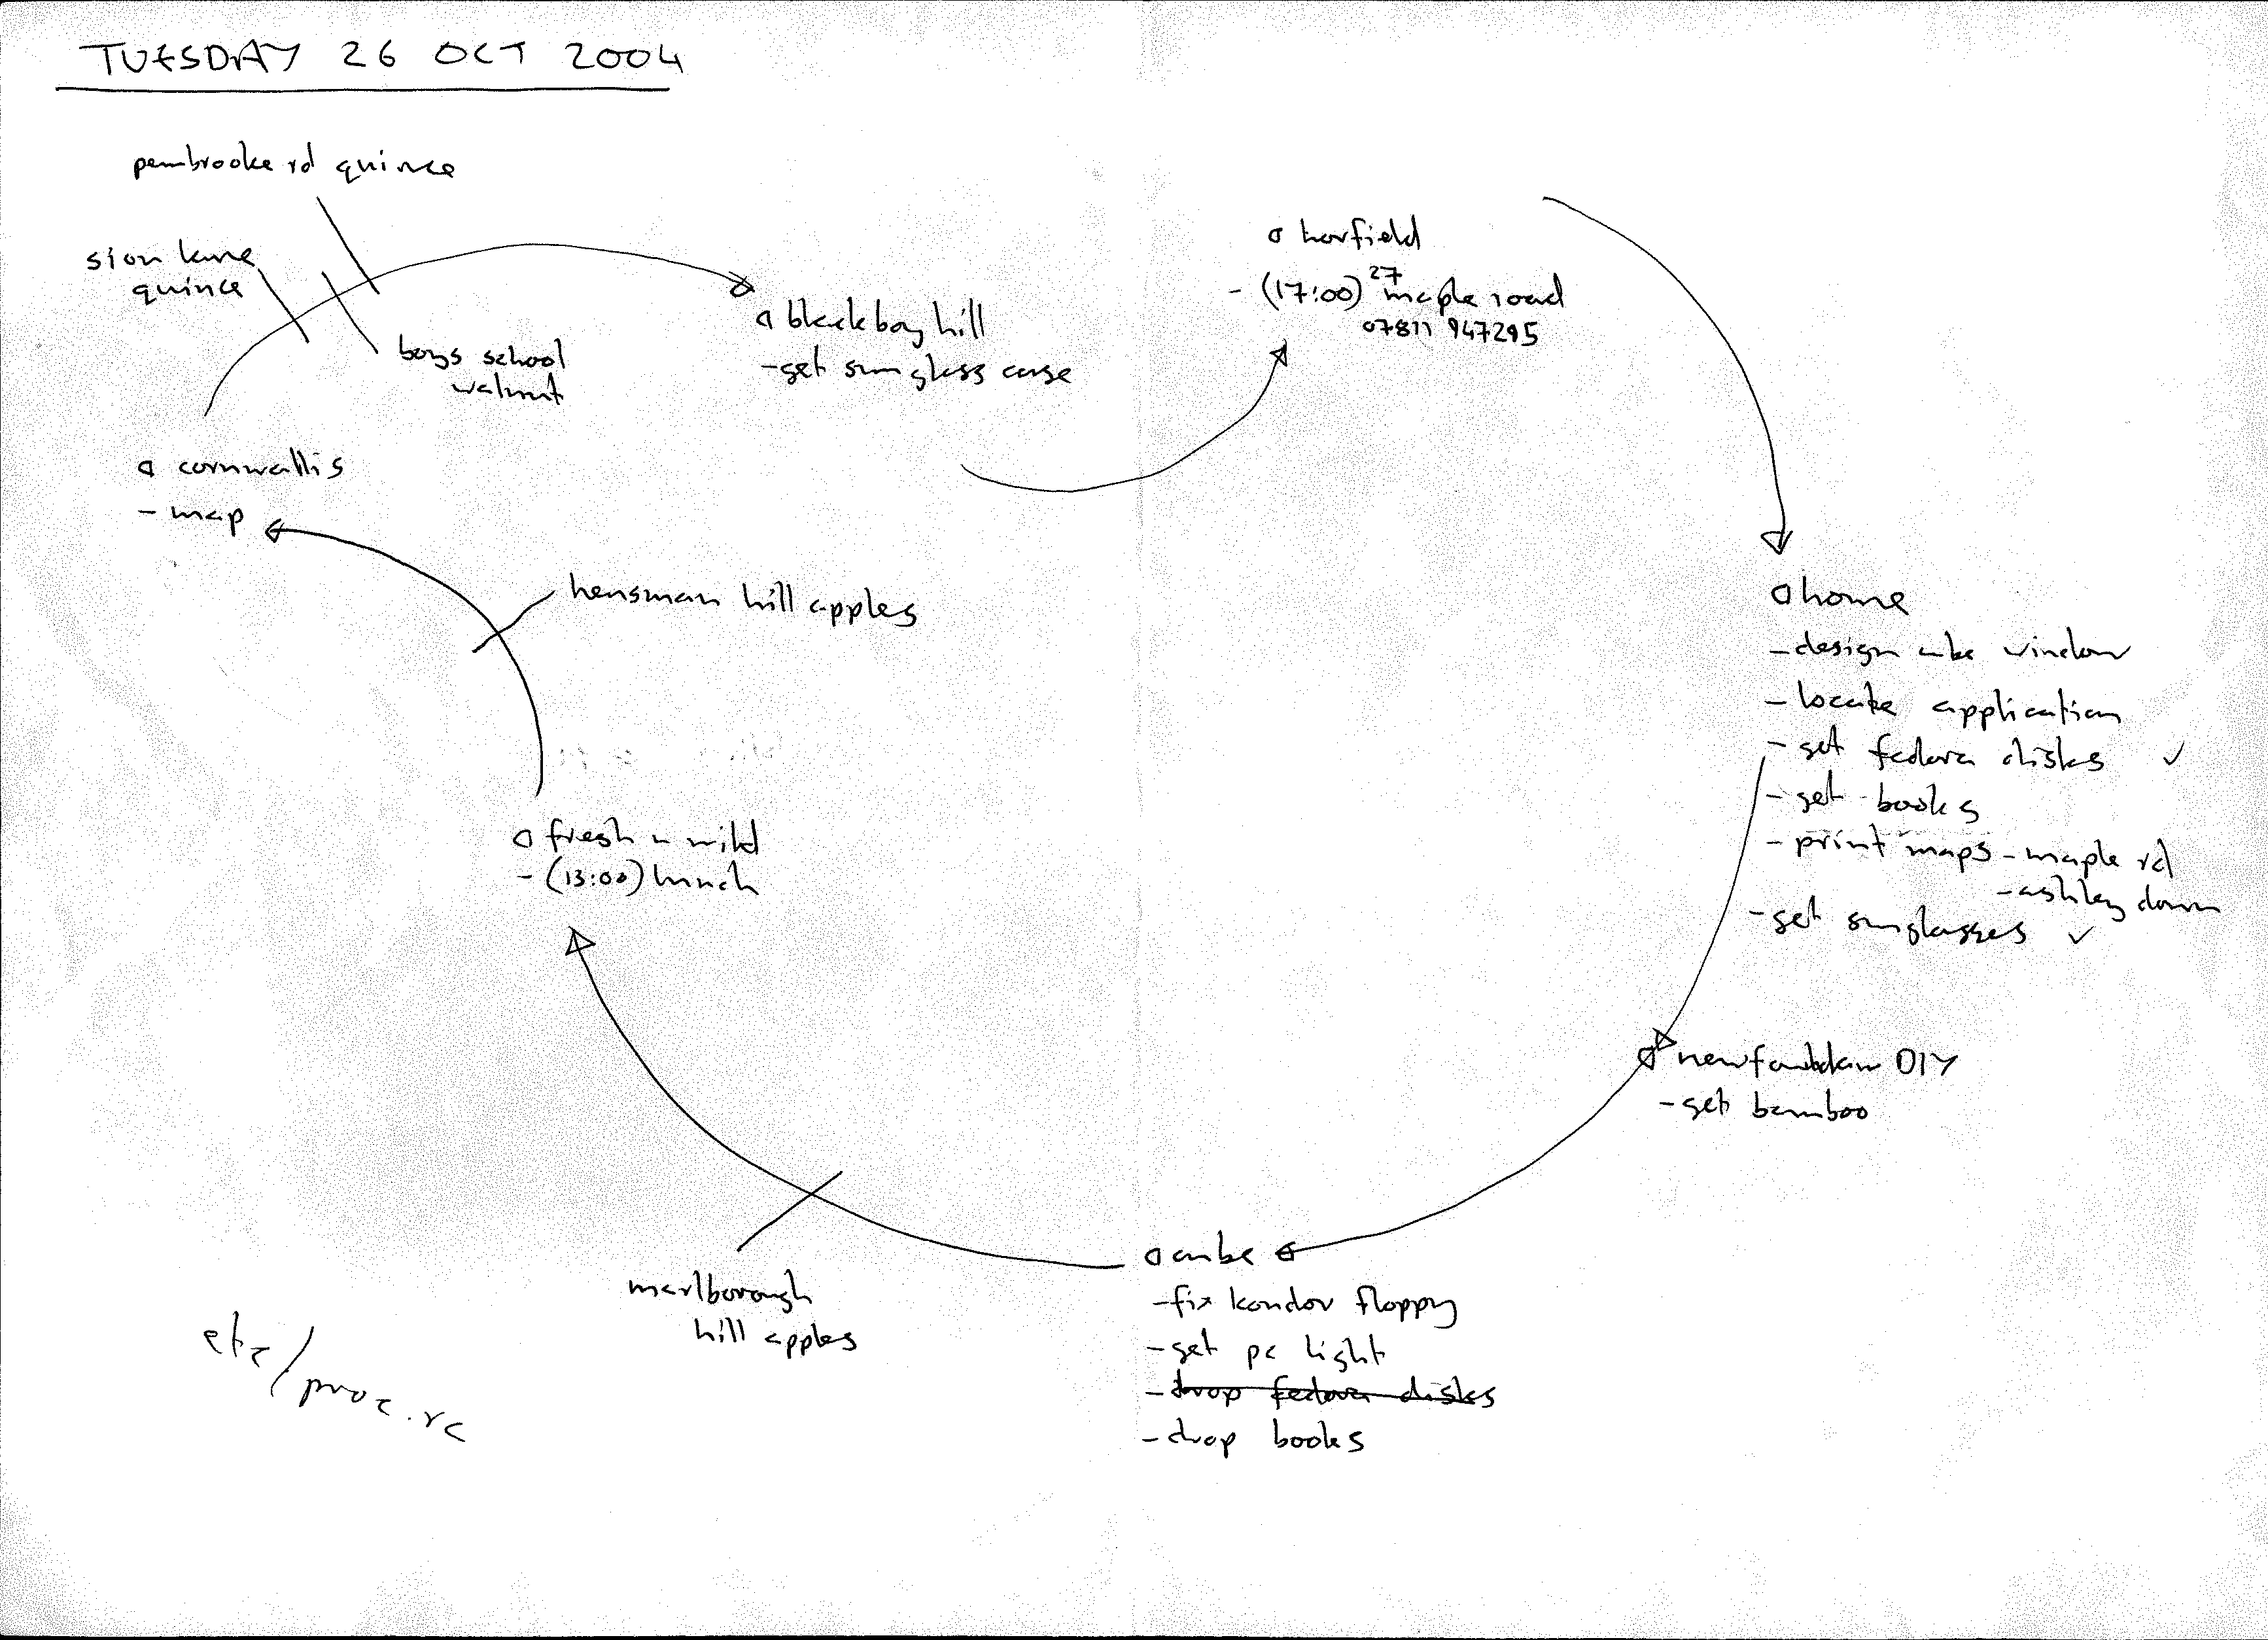 TUESDAY 26 OCT 2004
pembrooke rd quince
sion lane
quince
boys school
walnut
blackboy hill
- get sunglass case
horfield
- (17:00) 27 maple road
07811 947295
cornwallis
- map
hensman hill apples
home
- design cube window
- locate application
- get fedora disks ✓
- get books
- print maps - maple rd
- ashley down
- get sunglasses ✓
fresh n wild
- (13:00) lunch
DIY
- get bamboo
cube
- fix kondor floppy
- get pc light
- drop fedora disks
- drop books
marlborough
hill apples
etc/proc.rc